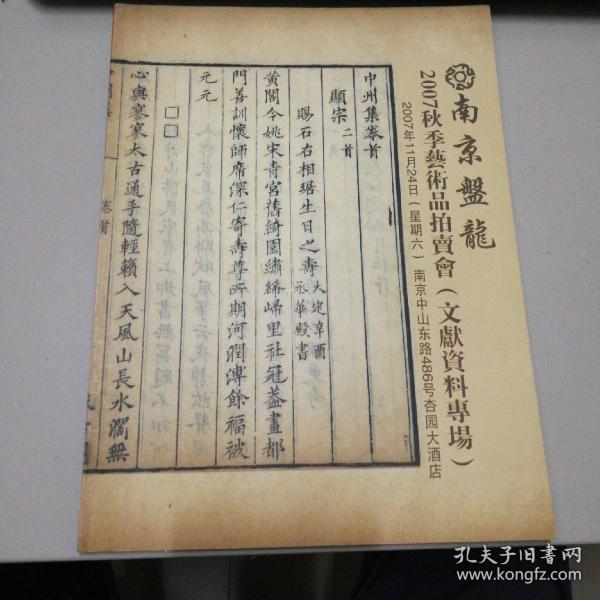 南京盤龍
2007秋季藝術品拍賣會(文獻資料專場)
2007年11月24日(星期六) 南京中山东路486号杏园大酒店
中州集卷首
顯宗二首
賜石右相琚生日之壽大定辛酉
承華殿書
黄閣今姚宋青宮舊綺園繡絺歸里社冠蓋畫都
門善訓懷師席深仁寄壽尊所期河潤溥餘福被
元元
心與寥寥太古通手隨輕籟入天風山長水濶無
卷首
孔夫子旧书网
www.kongfz.com